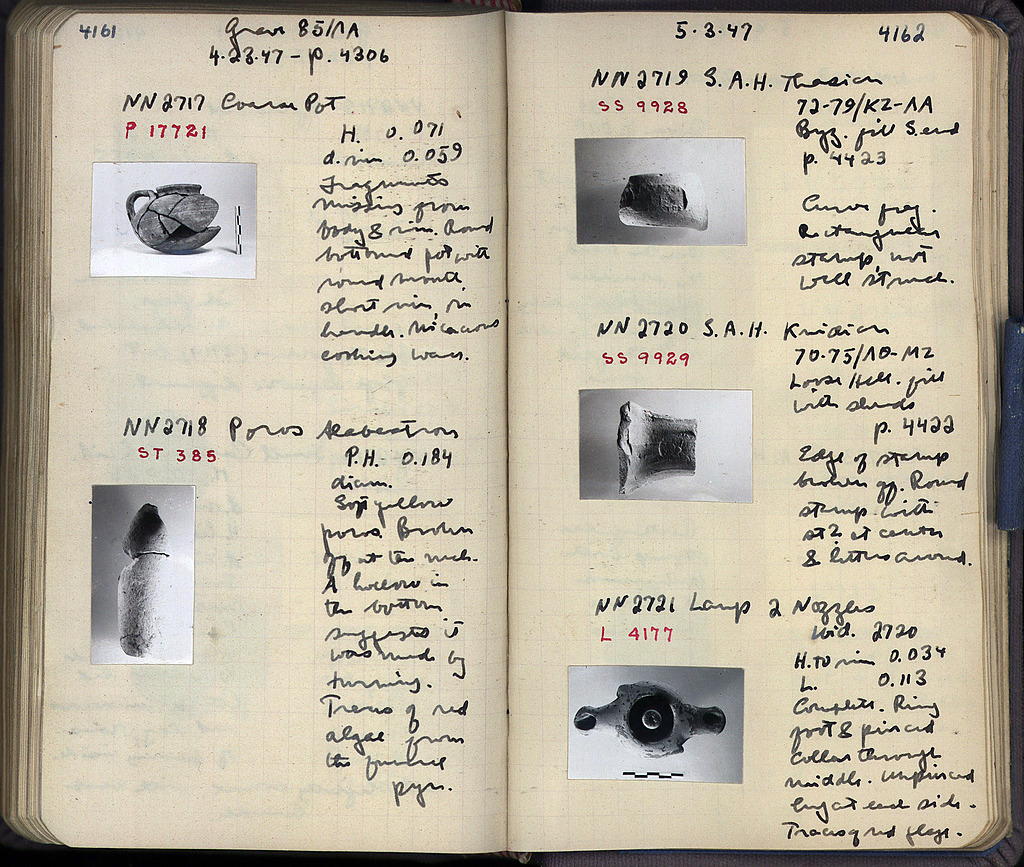 4161
Grave 85/ΛΑ
4·23·47 – p. 4306
NN2717 Coarse Pot
P 17721
H. 0.071
d. rim 0.059
Fragments
missing from
body & rim. Round
bottomed pot with
round mouth,
short rim,
handle. Micaceous
cooking ware.
NN2718 Poros Alabastron
ST 385
P.H. 0.184
diam.
Soft yellow
poros. Broken
off at the neck.
A hollow in
the bottom
suggests it
was made by
turning.
Traces of red
algae from
the funeral
pyre.
5·3·47
4162
NN2719 S.A.H. Thasian
SS 9928
72-79/ΚΖ-ΛΑ
Byz. fill S. end
p. 4423
Curve frag.
Rectangular
stamp not
well struck.
NN2720 S.A.H. Knidian
SS 9929
70-75/ΛΘ-ΜΖ
Loose Hell. fill
with sherds
p. 4422
Edge of stamp
broken off. Round
stamp with
at center
& letters around.
NN2721 Lamp 2 Nozzles
L 4177
Wid. 2720
H. to rim 0.034
L. 0.113
Complete. Ring
foot & pierced
collar through
middle. Unpierced
lug at each side.
Traces of red glaze.